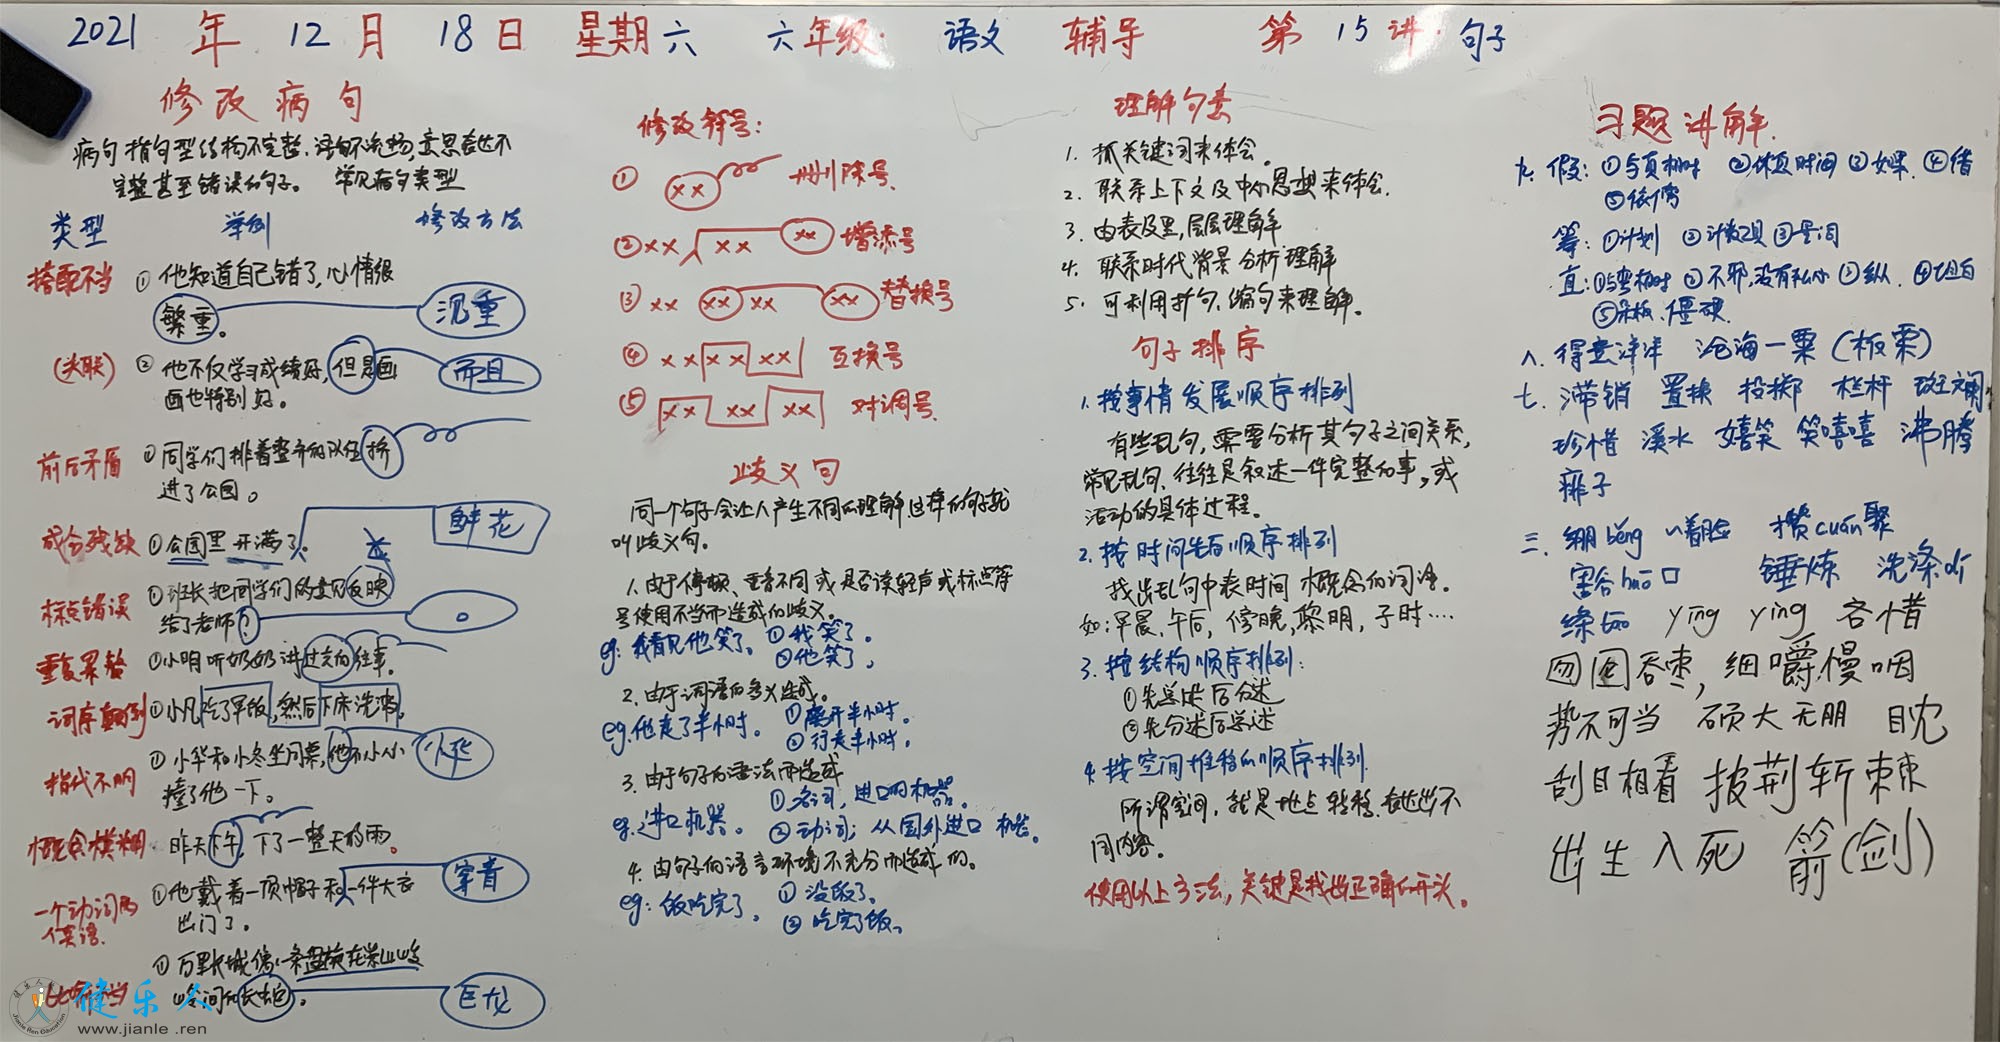 2021 年 12 月 18 日 星期六 六年级 语文 辅导 第 15 讲 句子
修改病句
病句指句型结构不完整、语句不流畅,意思表达不
完整甚至错误的句子。 常见病句类型
类型 举例 修改方法
搭配不当 ①他知道自己错了,心情很
繁重。 沉重
(关联) ②他不仅学习成绩好,但是画
画也特别好。 而且
前后矛盾 ①同学们排着整齐的队伍挤
进了公园。
成分残缺 ①公园里开满了。 鲜花
标点错误 ①班长把同学们的意见反映
给了老师? 。
重复累赘 ①小明听奶奶讲过去的往事。
词序颠倒 ①小凡吃了早饭,然后下床洗漱。
指代不明 ①小华和小冬坐同桌,他不小心
撞了他一下。 小华
概念模糊 昨天下午,下了一整天的雨。
一个动词两 ①他戴着一顶帽子和一件大衣
个宾语. 出门了。 穿着
比喻不当 ①万里长城像一条盘旋在崇山峻
岭间的长虫。 巨龙
健乐人
www.jianle .ren
修改符号:
① ×× 删除号.
② ×× ×× ×× 增添号
③ ×× ×× ×× ×× 替换号
④ ×× ×× ×× 互换号
⑤ ×× ×× ×× 对调号.
歧义句
同一个句子会让人产生不同的理解这样的句子就
叫歧义句。
1.由于停顿、重音不同或是否读轻声或标点符
号使用不当而造成的歧义。
eg: 我看见他笑了。 ①我笑了。
②他笑了。
2.由于词语的多义造成。
eg.他走了半小时。 ①离开半小时。
②行走半小时。
3.由于句子的语法而造成
eg.进口机器。 ①名词,进口的机器。
②动词:从国外进口机器。
4.由句子的语言环境不充分而造成的。
eg:饭吃完了。 ①没饭了。
②吃完饭。
理解句意
1. 抓关键词来体会。
2. 联系上下文及中心思想来体会.
3. 由表及里,层层理解
4. 联系时代背景分析理解
5. 可利用扩句、缩句来理解。
句子排序
1.按事情发展顺序排列
有些乱句,需要分析其句子之间关系,
常见乱句,往往是叙述一件完整的事,或
活动的具体过程。
2.按时间先后顺序排列
找出乱句中表时间概念的词语。
如:早晨,午后,傍晚,黎明,子时····
3.按结构顺序排列:
①先总述后分述
②先分述后总述
4.按空间推移的顺序排列.
所谓空间,就是地点转移,表达出不
同内容。
使用以上方法,关键是找出正确的开头。
习题讲解.
九. 假: ①与真相对 ②休息时间 ③如果. ④借
⑤依凭
筹: ①计划 ②计数工具 ③量词
直: ①与弯相对 ②不邪,没有私心 ③纵. ④坦白
⑤呆板、僵硬.
八. 得意洋洋 沧海一粟(板栗)
七. 滞销 置换 投掷 栏杆 斑斓
珍惜 溪水 嬉笑 笑嘻嘻 沸腾
痱子
三. 绷běng 着脸 攒cuán聚
豁huō口 锤炼 洗涤dí
绦tāo yīng yíng 吝惜
囫囵吞枣, 细嚼慢咽
势不可当 硕大无朋 眈
刮目相看 披荆斩棘
出生入死 箭(剑)